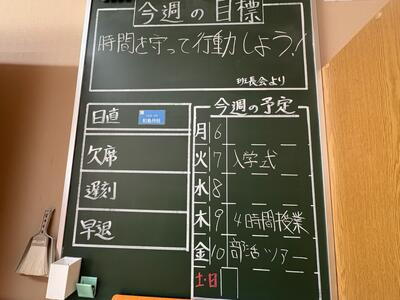 今週の目標
時間を守って行動しよう!
班長会より
日直
欠席
遅刻
早退
今週の予定
月 6
火 7 入学式
水 8
木 9 4時間授業
金 10 部活ツアー
土・日